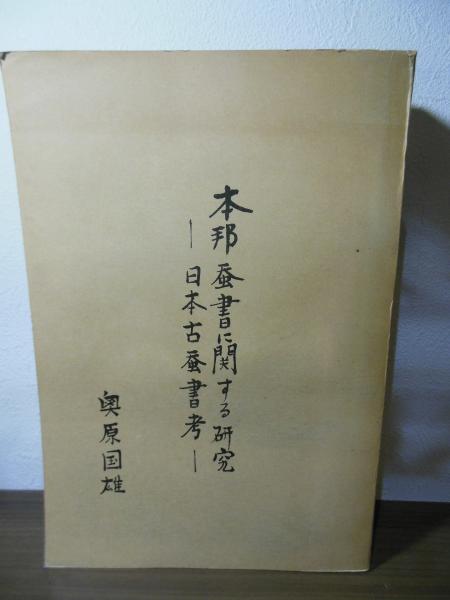 本邦蚕書に関する研究
―日本古蚕書考―
奥原国雄